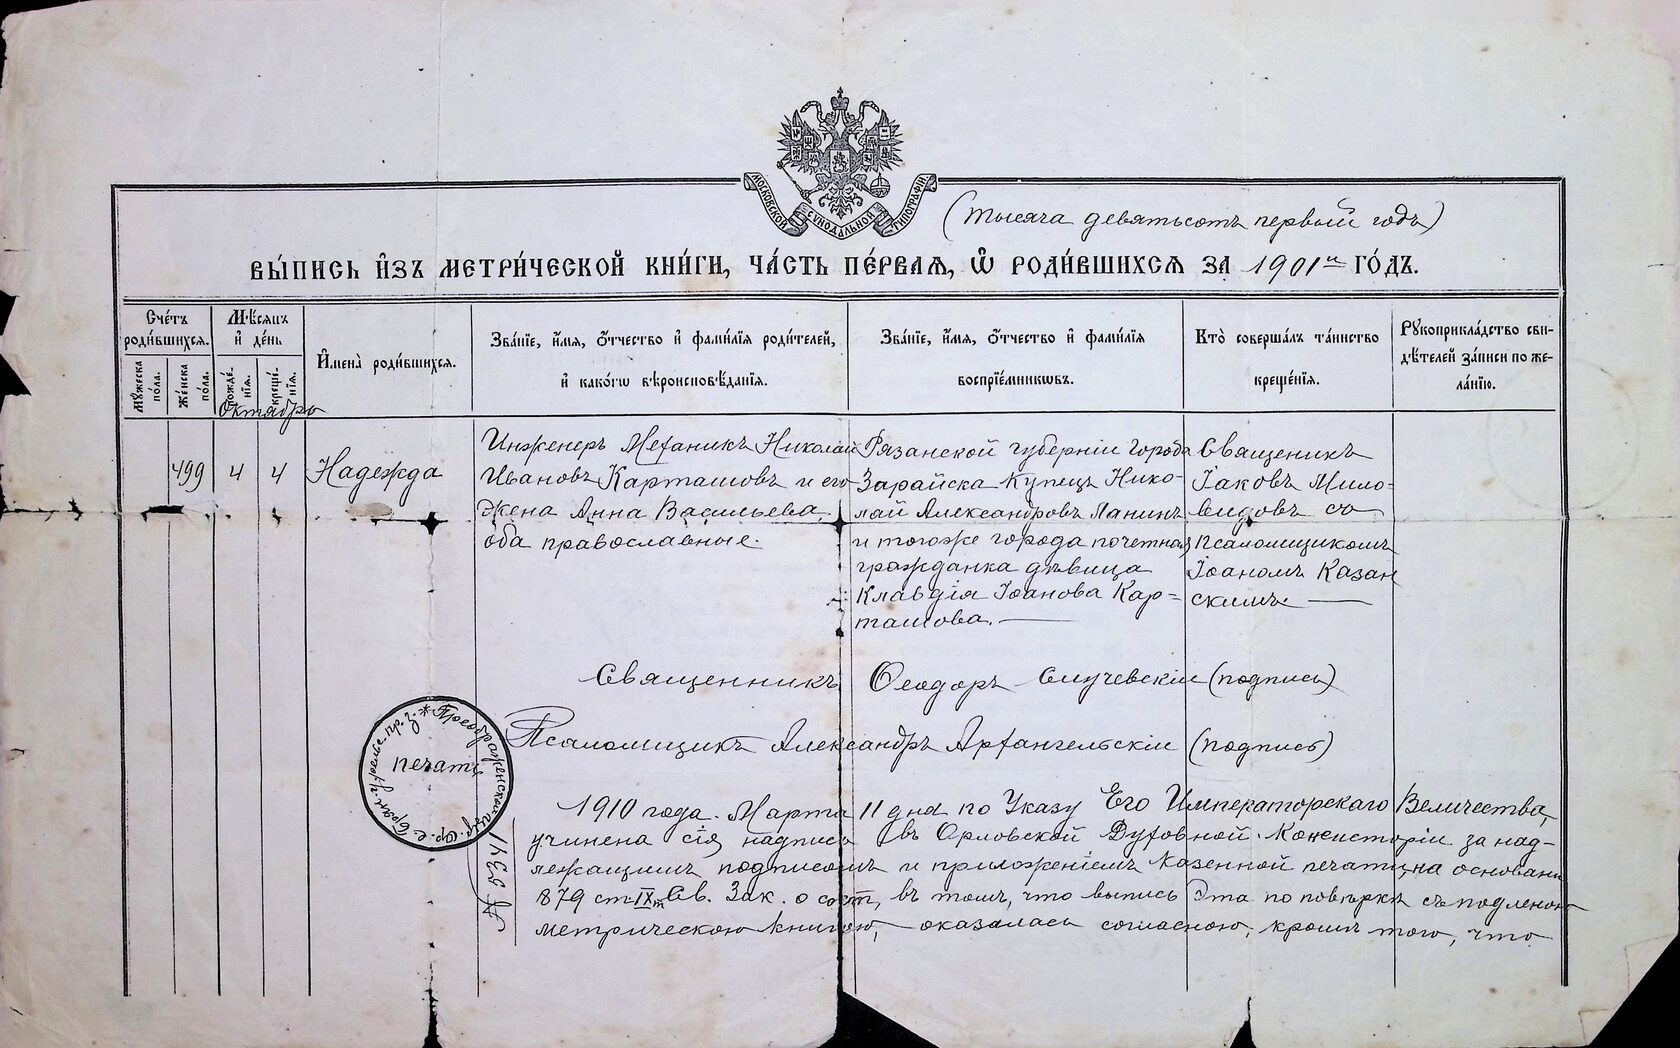 МОСКОВСКОЙ СѴНОДАЛЬНОЙ ТИПОГРАФІИ
(тысяча девятьсотъ первый годъ)
ВЫ́ПИСЬ И҆ЗЪ МЕТРИ́ЧЕСКОЙ КНИ́ГИ, ЧА́СТЬ ПЕ́РВАѦ, Ѽ РОДИ́ВШИХСѦ ЗА 1901й ГО́ДЪ.
Сче́тъ роди́вшихсѧ.
Мꙋ́жеска по́ла.
Же́нска по́ла.
Мѣ́сѧцъ и҆ де́нь
рожде́нїѧ.
креще́нїѧ.
И҆мена̀ роди́вшихсѧ.
Зва́нїе, и҆́мѧ, ѻ҆́тчество и҆ фами́лїѧ роди́телей,
и҆ како́гѡ вѣроисповѣ́данїѧ.
Зва́нїе, и҆́мѧ, ѻ҆́тчество и҆ фами́лїѧ
воспрїе́мникѡвъ.
Кто̀ соверша́лъ та́инство
креще́нїѧ.
Рꙋкоприкла́дство сви-
дѣ́телей за́писи по же-
ла́нїю.
Октября
499
4
4
Надежда
Инженеръ Механикъ Николай
Ивановъ Карташовъ и его
жена Анна Васильева,
оба православные.
Рязанской губерніи города
Зарайска купецъ Нико-
лай Александровъ Панинъ
и тогоже города почетная
гражданка дѣвица
Клавдія Іоанова Кар-
ташова.
Священикъ
Іаковъ Мило-
видовъ съ
псаломщикомъ
Іоаномъ Казан
скимъ
Священникъ Ѳеодоръ Случевскій (подпись)
Псаломщикъ Александръ Архангельскій (подпись)
Преображенской цер.
печать
№ 3341
1910 года. Марта 11 дня по Указу Его Императорскаго Величества,
учинена сія надпись въ Орловской Духовной Консисторіи за над-
лежащимъ подписомъ и приложеніемъ казенной печати, на основаніи
879 ст. IX т. Св. Зак. о сост, въ томъ, что выпись эта по повѣркѣ съ подленою
метрическою книгою, оказалась согласною, кромѣ того, что